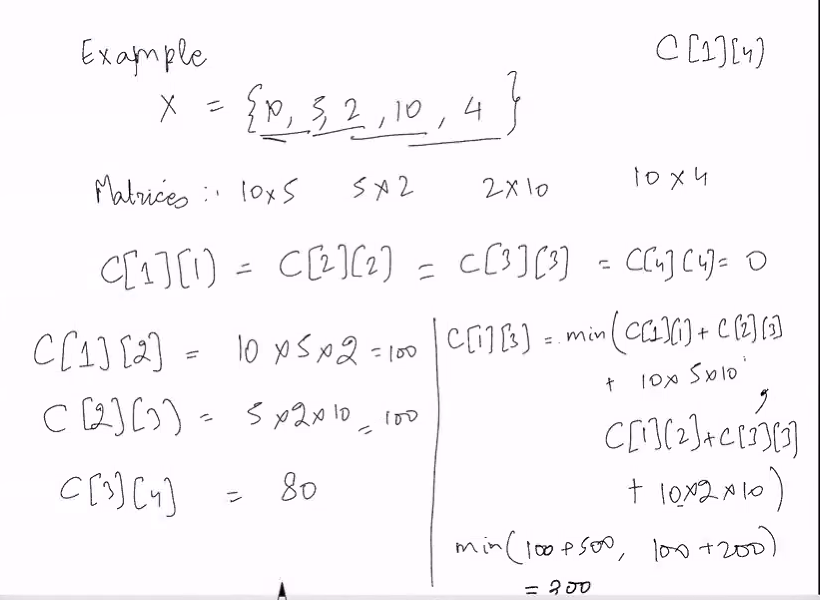 Example
C[1][4]
X = {10, 5, 2, 10, 4}
Matrices :: 10x5 5x2 2x10 10x4
C[1][1] = C[2][2] = C[3][3] = C[4][4] = 0
C[1][2] = 10x5x2 = 100
C[2][3] = 5x2x10 = 100
C[3][4] = 80
C[1][3] = min(C[1][1] + C[2][3]
+ 10x5x10,
C[1][2]+C[3][3]
+ 10x2x10)
min(100+500, 100+200)
= 300